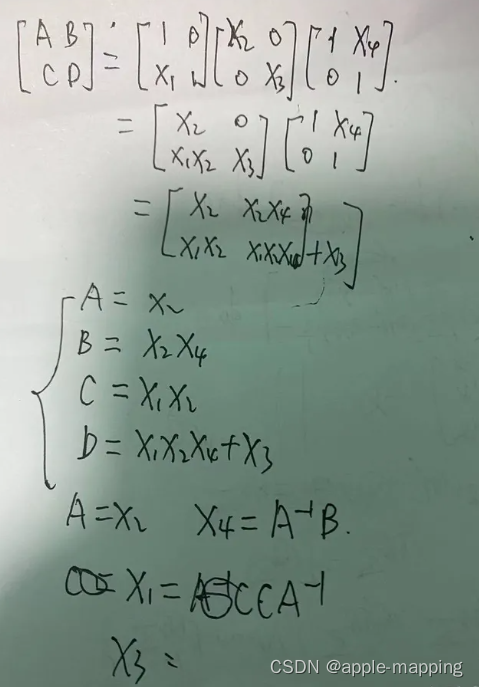 [A B
C D] = [1 0
X₁ 1] [X₂ 0
0 X₃] [1 X₄
0 1].
= [X₂ 0
X₁X₂ X₃] [1 X₄
0 1]
= [X₂ X₂X₄
X₁X₂ X₁X₂X₄+X₃]
A = X₂
B = X₂X₄
C = X₁X₂
D = X₁X₂X₄+X₃
A=X₂ X₄=A⁻¹B.
X₁ = CA⁻¹
X₃ =
CSDN @apple-mapping